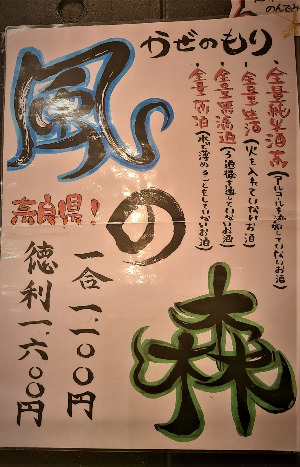 のんでみ
かぜのもり
風の森
・全量純米酒(アルコールを添加していないお酒)
・全量生酒(火を入れていないお酒)
・全量無濾過(ろ過機を通していないお酒)
・全量原酒(水で薄めることをしていないお酒)
奈良県!
一合一一〇〇円
徳利一六〇〇円